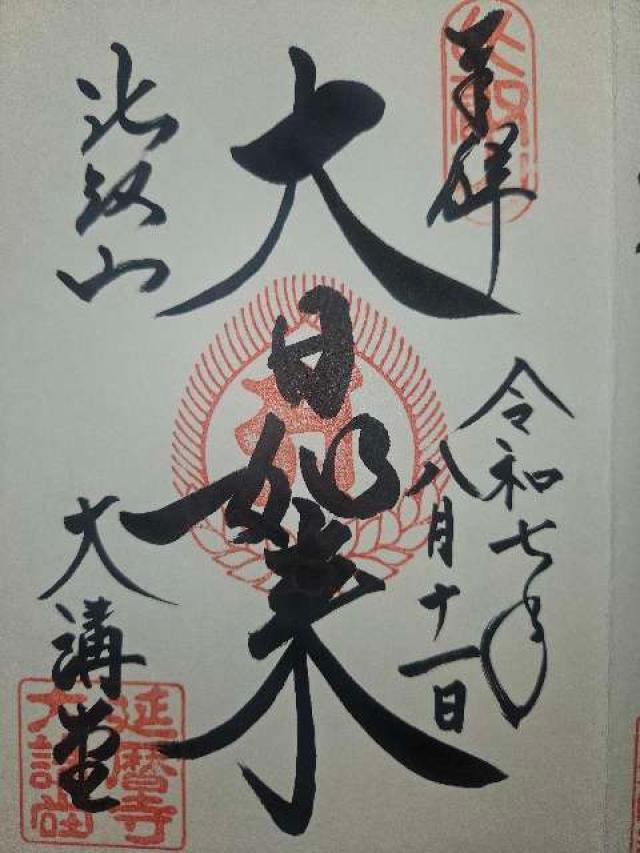 奉拝
令和七年
八月十一日
大日如来
比叡山
大講堂
延暦寺
大講堂